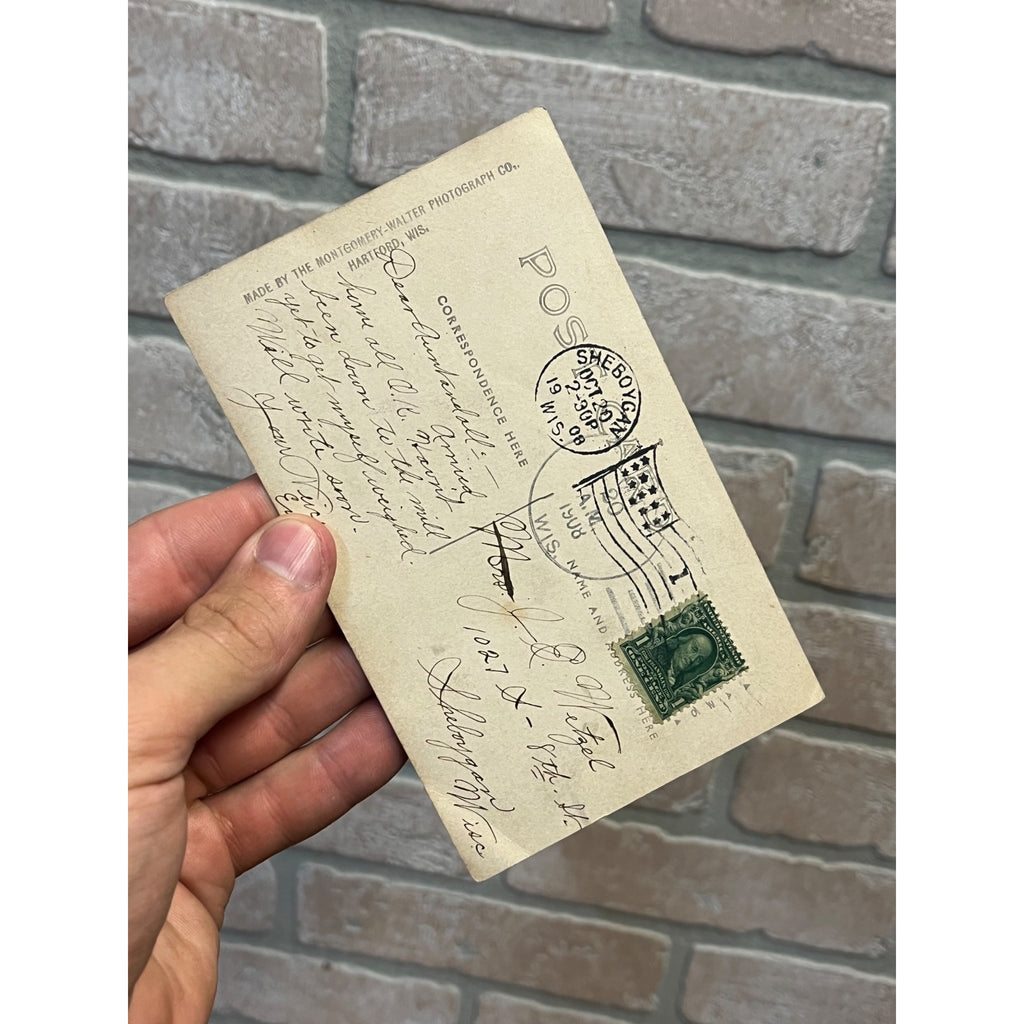 MADE BY THE MONTGOMERY-WALTER PHOTOGRAPH CO.,
HARTFORD, WIS.
POST CA
CORRESPONDENCE HERE
NAME AND ADDRESS HERE
Dear Aunt and all:-
Arrived
home all O.K. Havn't
been down to the mill
yet to get myself weighed.
Will write soon.
Your
SHEBOYGAN
OCT 20
2-30P
19 08
WIS.
20
A.M.
1908
WIS.
1
Mrs. J. Q. Wetzel
1027 S - 8th. St.
Sheboygan
Wisc